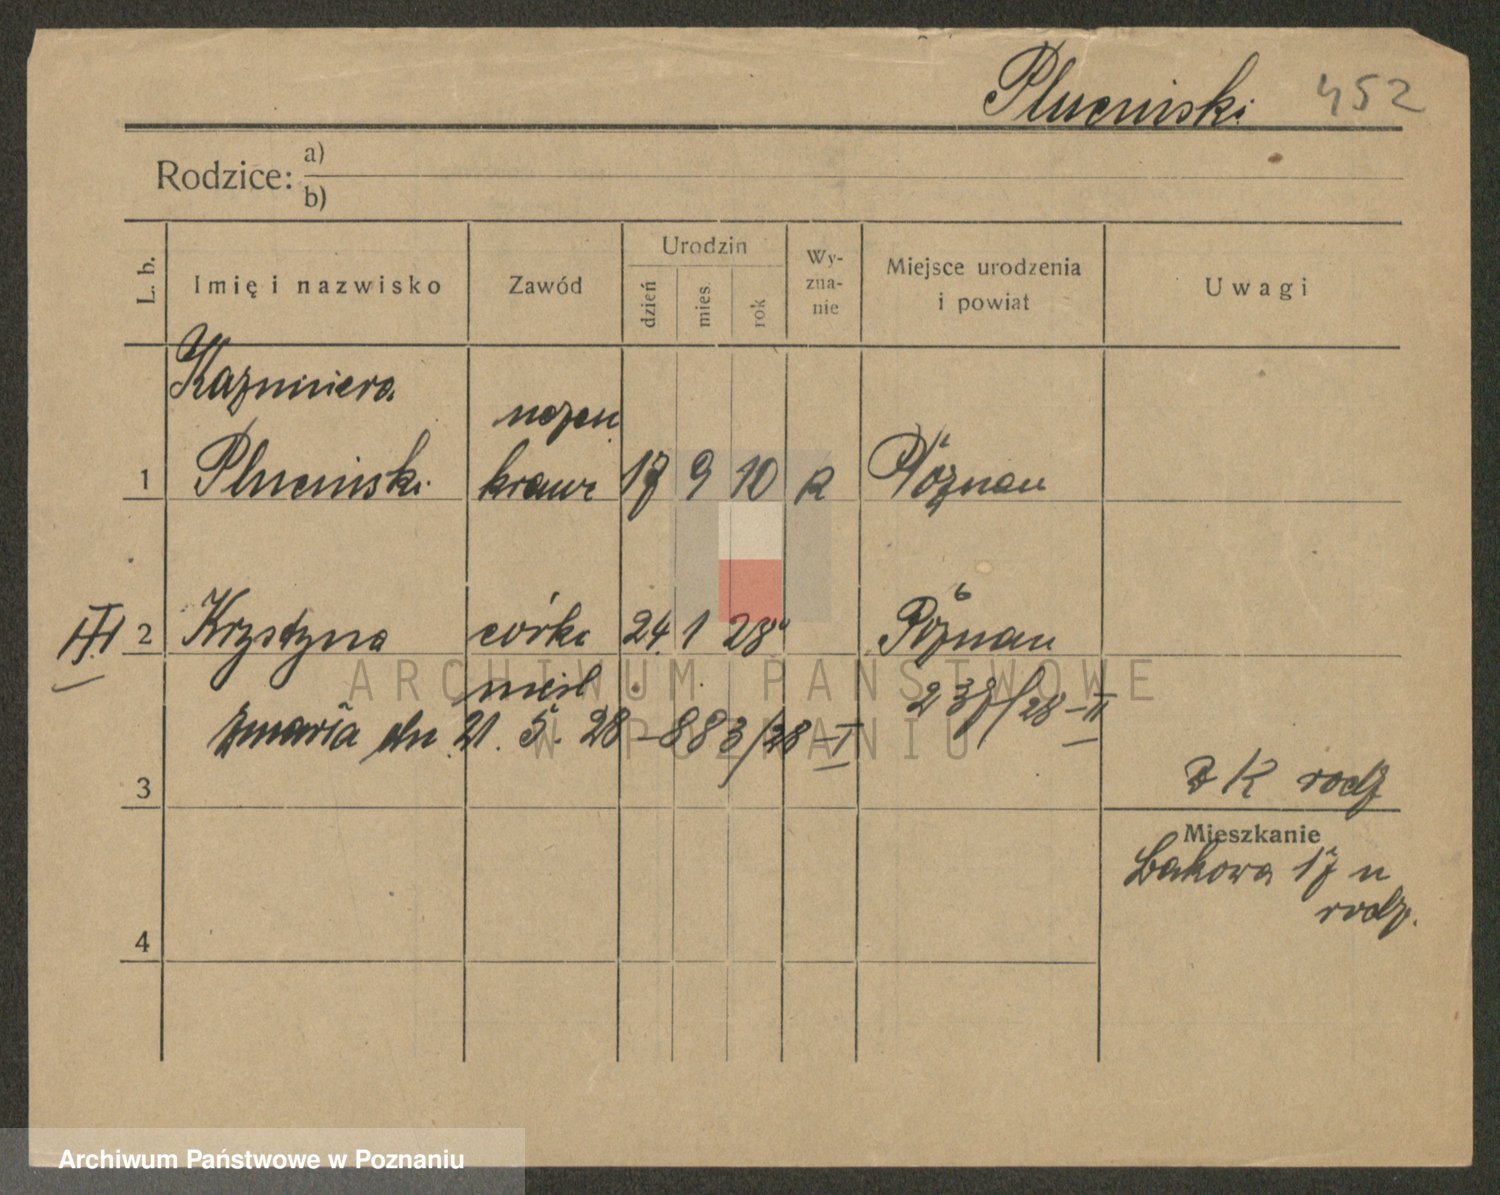 Pluciński 452
Rodzice: a)
b)
L. b.
Imię i nazwisko
Zawód
Urodzin
dzień
mies.
rok
Wy-
zna-
nie
Miejsce urodzenia
i powiat
Uwagi
Kazimiera
uczen
1 Pluciński krawc 17 9 10 R Poznań
III 2 Krystyna córka 24 1 28 Poznań
nieśl 237/28-II
zmarła dn. 21. 5. 28 - 883/28-I
3
K rodz
Mieszkanie
Łąkowa 17 u
rodz.
4
ARCHIWUM PAŃSTWOWE
W POZNANIU
Archiwum Państwowe w Poznaniu